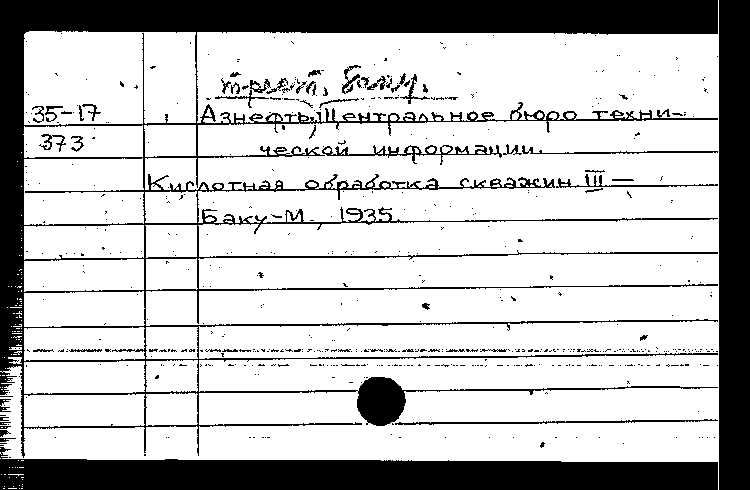 трест, Баку.
35-17 Азнефть, Центральное бюро техни-
373 ческой информации.
Кислотная обработка скважин III —
Баку-М., 1935.